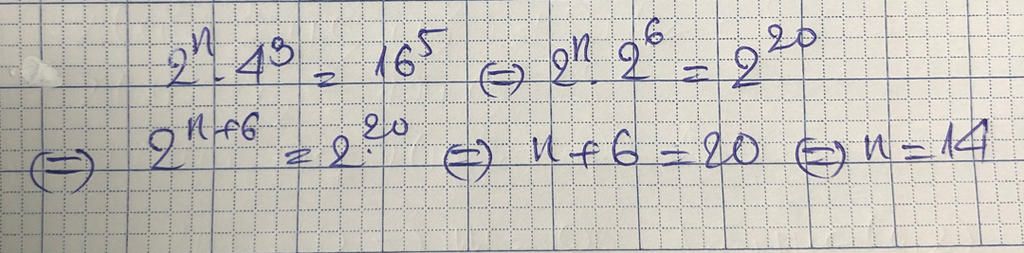 2ⁿ . 4³ = 16⁵ ⇔ 2ⁿ . 2⁶ = 2²⁰
⇔ 2ⁿ⁺⁶ = 2²⁰ ⇔ n + 6 = 20 ⇔ n = 14